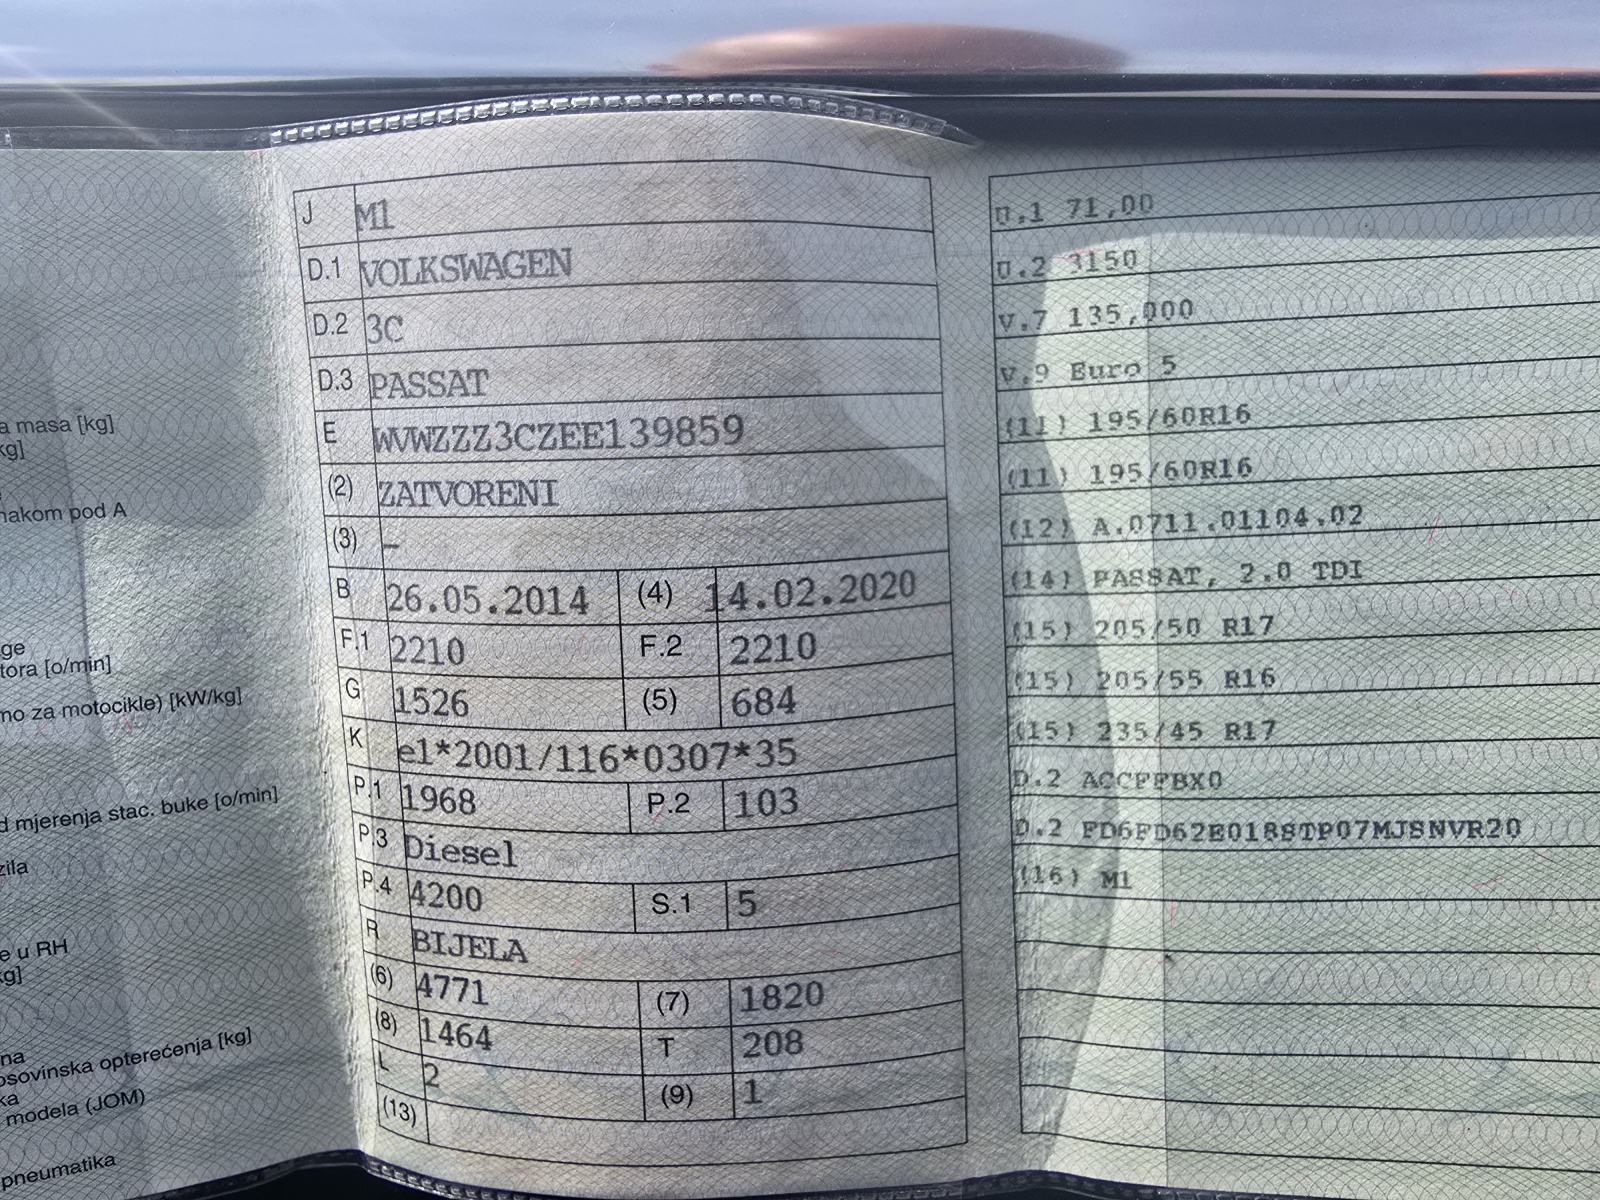 a masa [kg]
kg]
nakom pod A
ge
tora [o/min]
no za motocikle) [kW/kg]
d mjerenja stac. buke [o/min]
zila
e u RH
kg]
na
osovinska opterećenja [kg]
ka
modela (JOM)
pneumatika
J M1
D.1 VOLKSWAGEN
D.2 3C
D.3 PASSAT
E WVWZZZ3CZEE139859
(2) ZATVORENI
(3) –
B 26.05.2014 (4) 14.02.2020
F.1 2210 F.2 2210
G 1526 (5) 684
K e1*2001/116*0307*35
P.1 1968 P.2 103
P.3 Diesel
P.4 4200 S.1 5
R BIJELA
(6) 4771 (7) 1820
(8) 1464 T 208
L 2 (9) 1
(13)
U.1 71,00
U.2 3150
V.7 135,000
V.9 Euro 5
(11) 195/60R16
(11) 195/60R16
(12) A.0711.01104.02
(14) PASSAT, 2.0 TDI
(15) 205/50 R17
(15) 205/55 R16
(15) 235/45 R17
D.2 ACCFFBX0
D.2 FD6FD62E018STP07MJSNVR20
(16) M1